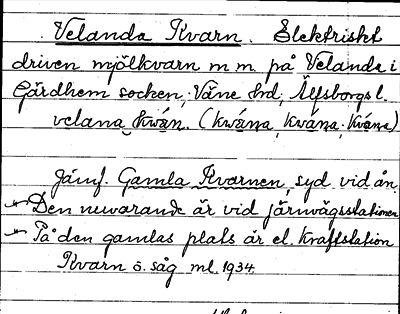 Velanda Kvarn. Elektriskt
driven mjölkvarn m m på Velanda i
Gärdhem socken, Väne hrd, Älfsborgs l.
velana kwán. (kwána, kvána, kvána)
Jämf. Gamla Kvarnen, syd vid ån.
Den nuvarande är vid järnvägsstationen
På den gamlas plats är el. kraftstation
Kvarn o. såg ml. 1934.